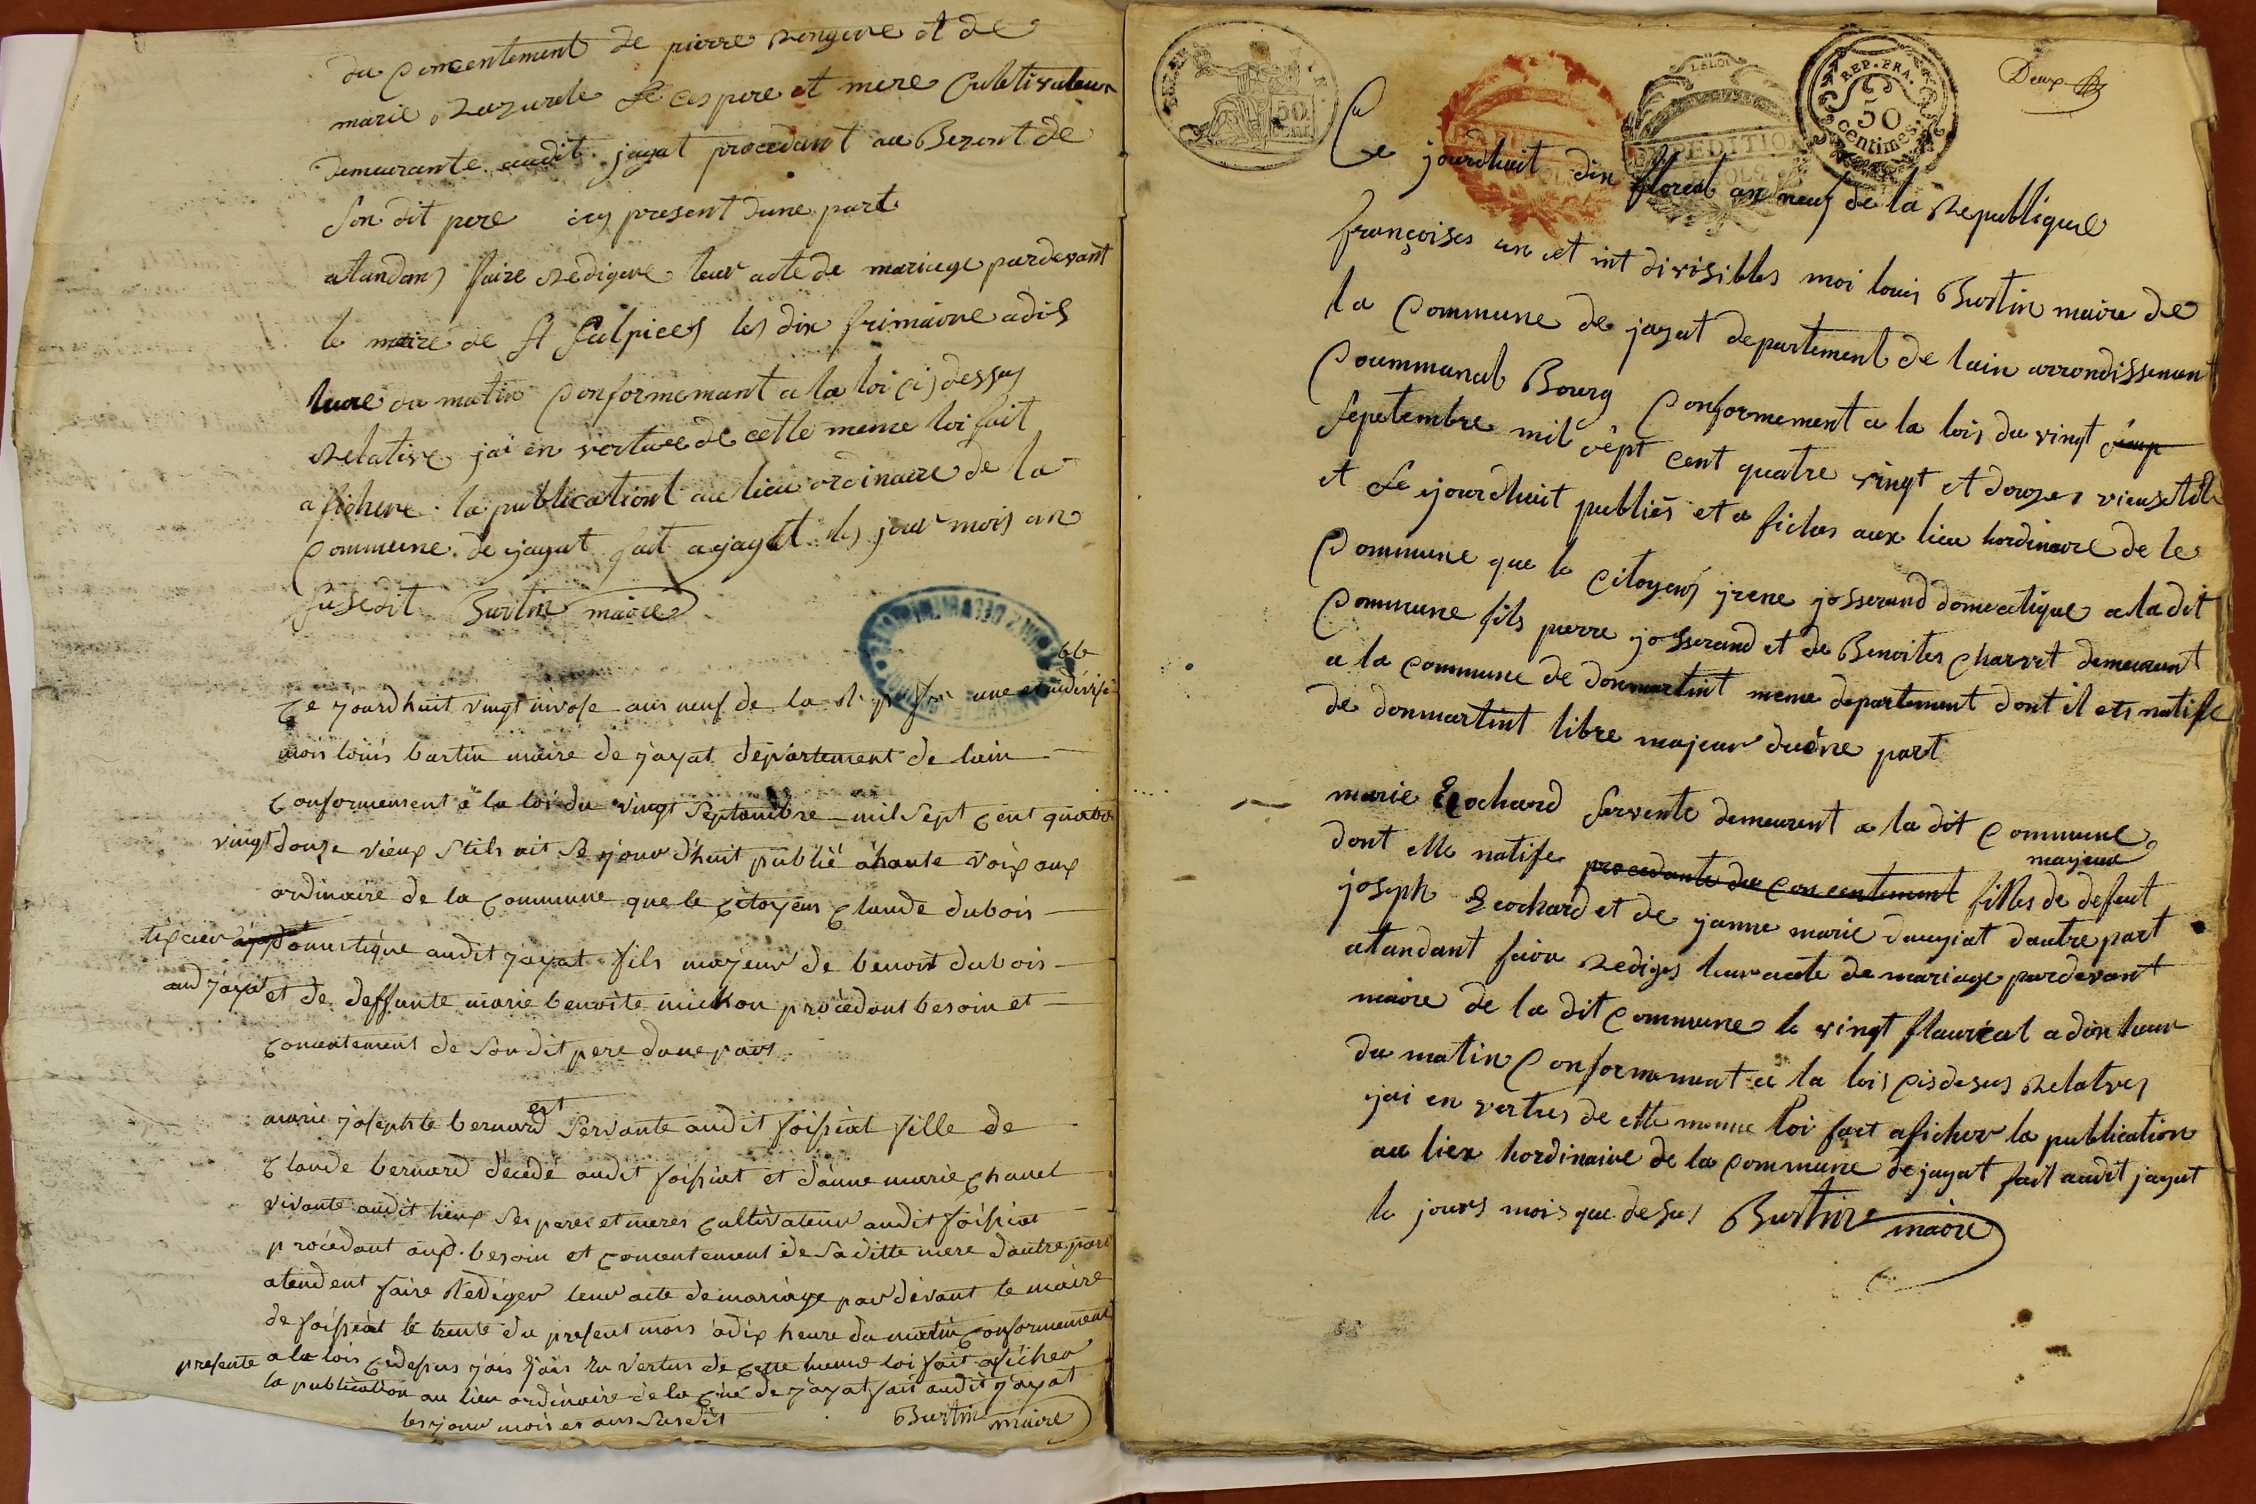 du Concentement de pierre rengere et de
marie Lazurele Se ces pere et mere Cultivateur
demeurante audit jayat procedant au Bezont de
Son dit pere icy present dune part
atandans faire redigere leur acte de mariage pardevant
le maire de St Sulpices les dix frimaire adis
lueore du matin Conformemant a la loi ci dessus
relative jai en vertuee de cette meme loi fait
afichere la publicationt au lieu ordinaire de la
Commune de jayat fait a jayat les jour mois an
susdit Burtin maire
66
Ce jourdhuit vingt nivose ans neuf de la Rep fr une et indivisi
mois louis burtin maire de jayat departement de lain
Conformement a la loi du vingt Septembre mil Sept Cent quatre
vingt douze vieux Stils ait Se jour dhuit publié a haute voix aux
ordinaire de la Commune que le Citoyens Claude dubois
tixcier domestique audit jayat fils majeur de benoit dubois
aud jayat et de deffunte marie benoite michon procedant besoin et
Consentement de Son dit pere dune part
marie josephte bernard est Servante audit foissiat fille de
Claude bernard décédé audit foissiat et danne marie Chanel
vivante audit lieux Ses peres et meres Cultivateur audit foissiat
procedant aux besoin et Consentement de Saditte mere dautre part
atendent faire Rediger leur acte de mariage par devant le maire
de foissiat le trente du present mois a dix heure du matin Conformement
presente a la lois Cidessus jais jais En vertus de Cette meme loi fait aficher
la publication au lieu ordinaire de la Cne de jayat fait audit jayat
les jour mois et ans Susdits Burtin maire
SELLE 50 CENT
LA LOI
EXPEDITION
REP. FRA.
50
centimes.
Deux
Ce jourdhuit dix floreal an neuf de la Republique
françoises un et int divisibles moi louis Burtin maire de
la Commune de jayat departement de lain arrondissement
Coummunal Bourg Conformement a la lois du vingt
Sepetembre mil sêpt cent quatre vingt et douzes vieus stile
et Se ejourdhuit publiës et a fichés aux lieu hordinaire de le
Commune que le Citoyens jrene josserand domeatique a la dit
Commune fils pierre josserand et de Benoites Charvet demeurant
a la Commune de donmartint meme departement dont il ets natife
de donmartint libre majeur duëne part
marie Brochard servente demeurent a la dit Commune
dont elle natife procedante du Concentement filles de defeut
majeur
joseph Brochard et de janne marie daujiat dautre part
atandant faire rediges leur acte de mariage pardevant
maire de la dit Commune le vingt flaureal a dix heur
du matin Conformement a la lois Cisdesus relatves
jai en vertues de cette meme loi fait aficher la publication
au lieu hordinaire de la Commune de jayat fait audit jayat
le jours mois que desus Burtin maire